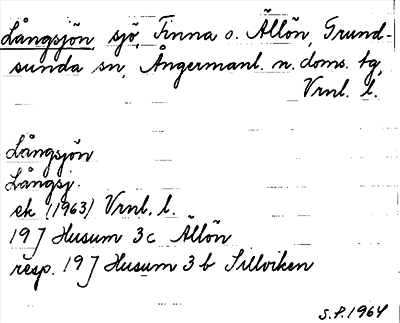 Långsjön, sjö, Finna o. Ällön, Grund-
sunda sn, Ångermanl. n. doms. tg,
Vrnl. l.
Långsjön
Långsj.
ek (1963) Vrnl. l.
19 J Husum 3c Ällön
resp. 19 J Husum 3b Sillviken
S.P. 1964